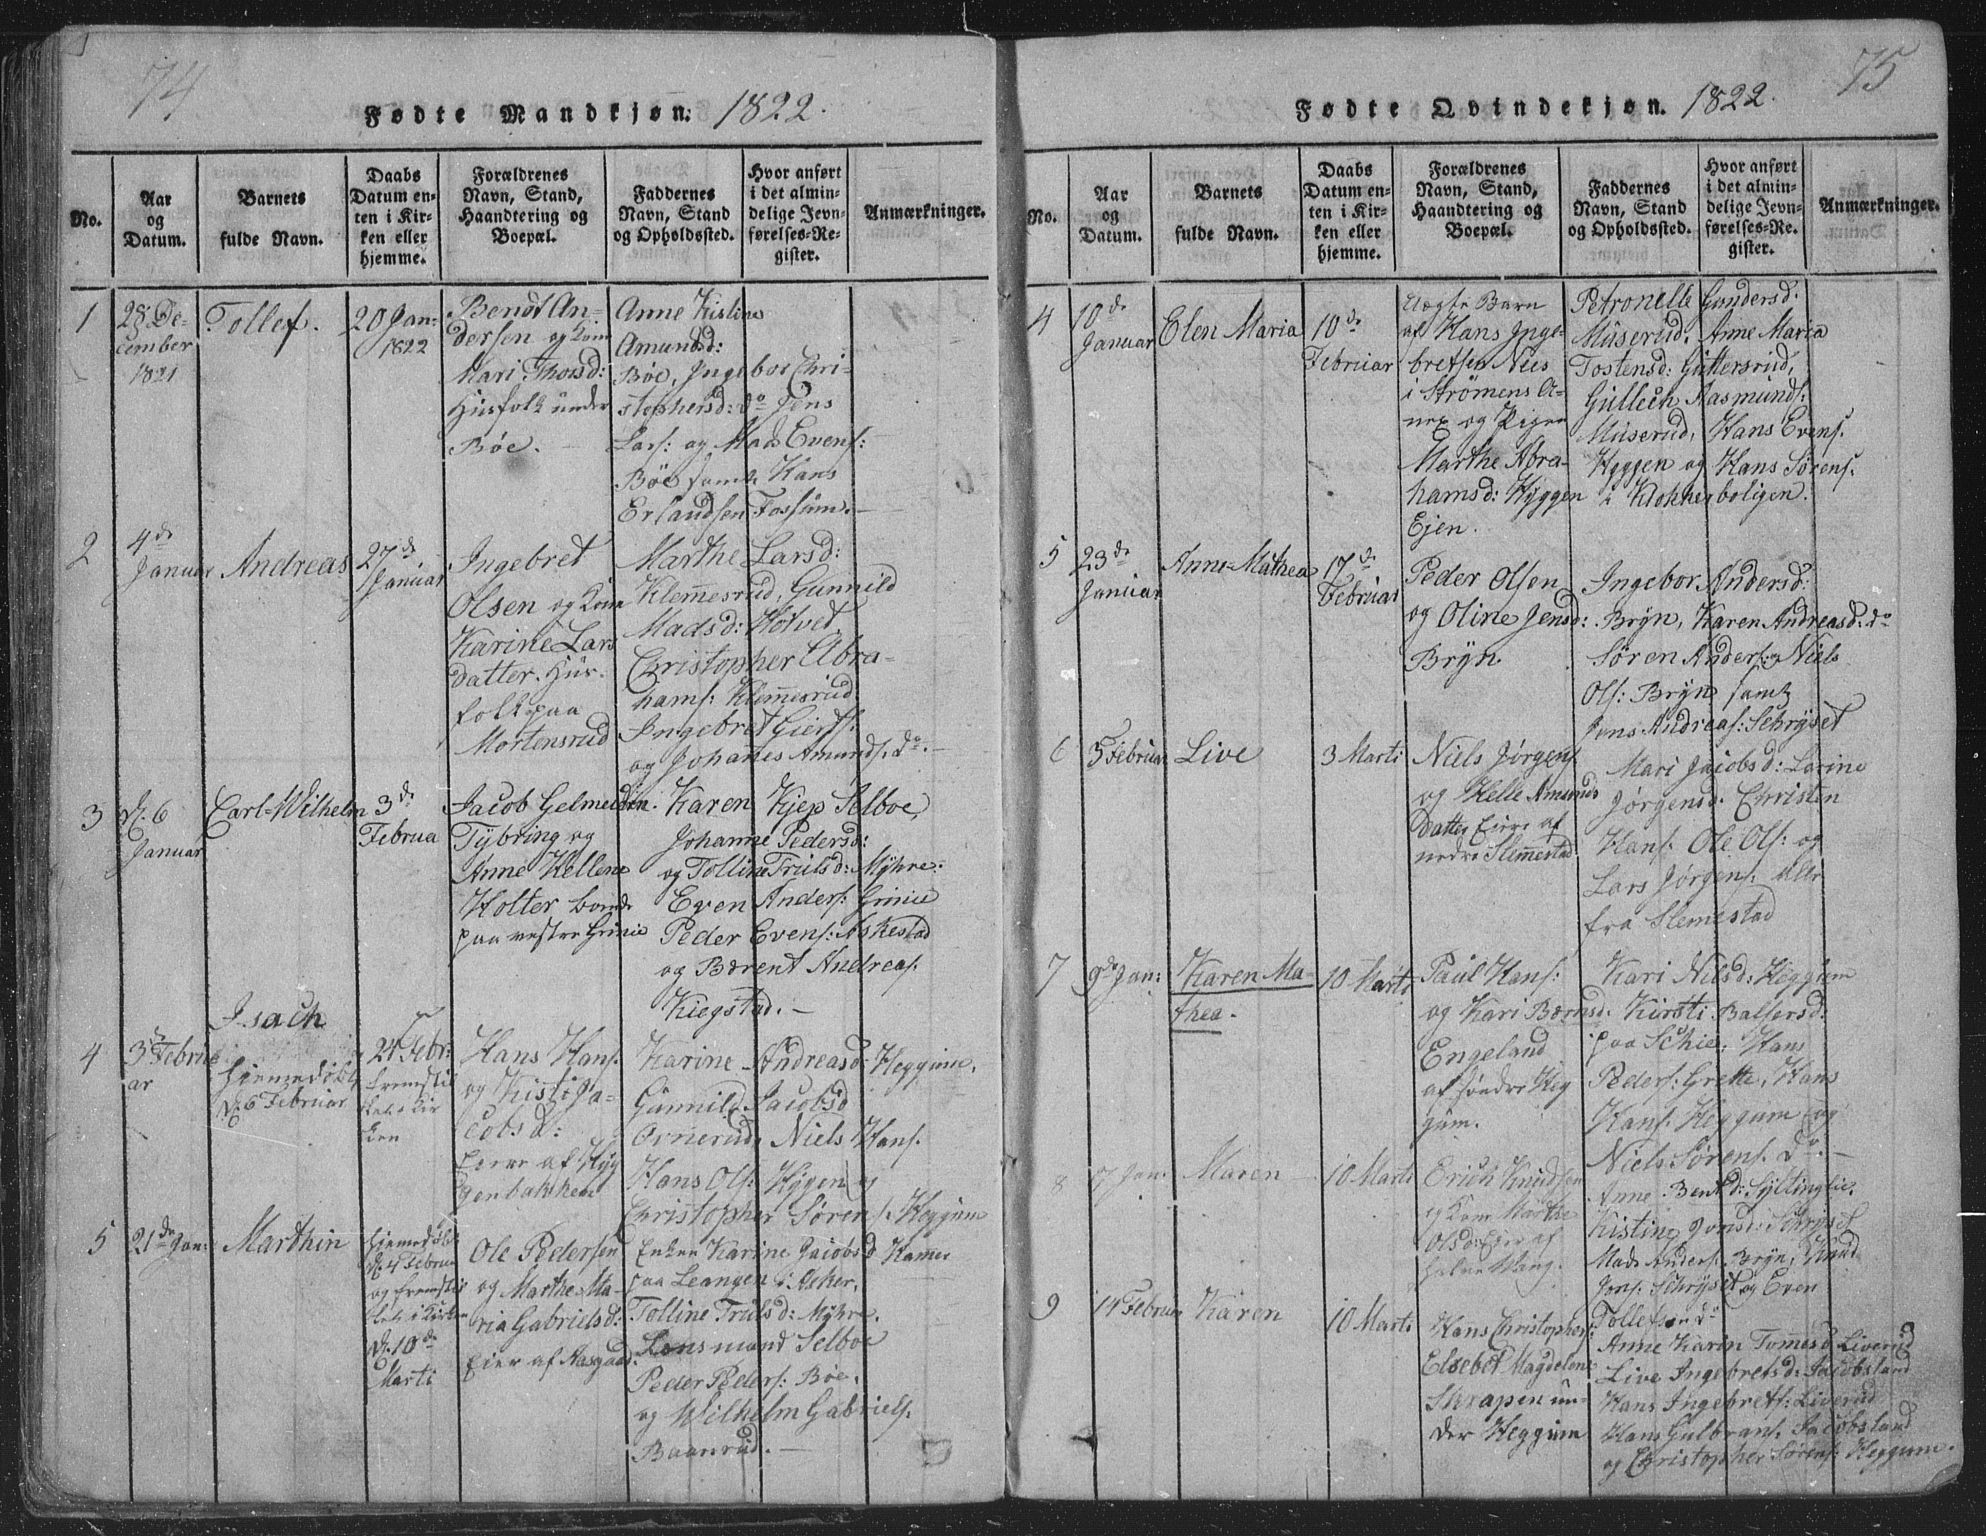 74
Fødte Mandkjøn. 1822.
No.
Aar
og
Datum.
Barnets
fulde Navn.
Daabs
Datum en-
ten i Kir-
ken eller
hjemme.
Forældrenes
Navn, Stand,
Haandtering og
Boepæl.
Faddernes
Navn, Stand
og Opholdssted.
Hvor anført
i det almin-
delige Jevn-
førelses-Re-
gister.
Anmærkninger.
1
28 De-
cember
1821
Tollef.
20 Jan:
1822
Bendt An-
dersen og Kone
Mari Thorsd:
Huusfolk under
Bøe.
Anne Kistine
Amundsd:
Bøe, Ingebor Chri-
stophersd: do Jens
Lars: og Mads Evens:
Bøe samt Hans
Erlandsen Fossum.
2
4de
Januar
Andreas
27de
Januar
Ingebret
Olsen og Kone
Karine Lars
datter. Huus-
folk paa
Mortensrud
Marthe Larsd:
Klemmesrud, Gunnild
Madsd: Hotvet
Christopher Abra-
hams: Klemmesrud
Ingebret Gierts:
og Johanes Amunds. do.
3
d. 6
Januar
Carl Wilhelm
3de
Februa
Jacob Gelmeiden
Tybring og
Anne Hellene
Holter bonde
paa vestre Grinie
Karen Kjep Selboe,
Johanne Pedersd:
og Tolline Trulsd: Myhre:
Even Anders: Grinie
Peder Evens: Askestad
og Bærent Andreas.
Kiegstad.
4
3 Febru
ar
Isach
hjemedøbt
d. 6 Februar
24 Febr:
fremstil
let i Kir
ken
Hans Hans.
og Kisti Ja-
cobsd:
Eiere af Hyg
genbakken
Karine Andreasd: Heggum,
Gunnild Jacobsd
Ornerud, Niels Hans.
Hans Ols: Hygen og
Christopher Sørens. Heggum
5
21de Jan:
Marthin
hjemedøbt
d. 4 Februar
og fremstil
let i Kirken
d. 10de
Marti
Ole Pedersen
og Marthe Ma-
ria Gabrielsd:
Eier af Aasgaad.
Enken Karine Jacobsd Hamer
paa Leangen i Asker,
Tolline Trulsd: Myhre.
Lensmand Selboe
Peder Peders: Bøe.
og Wilhelm Gabriels.
Baanrud.
75
Fødte Qvindekjøn. 1822.
No.
Aar
og
Datum.
Barnets
fulde Navn.
Daabs
Datum en-
ten i Kir-
ken eller
hjemme.
Forældrenes
Navn, Stand,
Haandtering og
Boepæl.
Faddernes
Navn, Stand
og Opholdssted.
Hvor anført
i det almin-
delige Jevn-
førelses-Re-
gister.
Anmærkninger.
4
10de
Januar
Elen Maria
10de
Februar
Uægte Barn
af Hans Inge-
bretsen Næs
i Strømens A-
nex og Pigen
Marthe Abra-
hamsd: Hyggen
Ejen.
Petronelle Gundersd:
Muserud. Anne Maria
Tostensd: Guttersrud,
Gullech Aasmunds:
Muserud, Hans Evens.
Hyggen og Hans Sørens.
i Klokkerboligen.
5
23de
Januar
Anne Mathea
17de
Februar
Peder Olsen
og Oline Jensd:
Bryn
Ingebor Andersd:
Bryn, Karen Andreasd: do
Søren Anders: Niels
Ols: Bryn samt
Jens Andreas: Schryset
6
5 Februar
Live
3 Marti
Niels Jørgens.
og Helle Amunds
datter Eiere af
nedre Slemmestad.
Mari Jacobsd: Larine
Jørgensd. Christen
Hans. Ole Ols: og
Lars Jørgens. alle
fra Slemestad
7
9de Jan:
Karen Ma-
thea.
10 Marti
Paul Hans:
og Kari Bærnsd:
Engeland
af søndre Heg
gum.
Kari Nilsd: Heggum
Kirsti Balsersd:
paa Schie: Hans
Peders: Grette, Hans
Hans. Heggum og
Niels Sørens. do.
8
17 Jan:
Maren
10 Marti
Erich Knudsen
og Kone Marthe
Olsd: Eier af
halve Wang.
Anne Bentsd: Syllinglie.
Kistine Jonsd: Schryset
Mads Anders. Bryn, Knud
Jons. Schryset og Even
Tollefsen do
9
14 Februar
Karen
10 Marti
Hans Christophers:
Elsebet Magdelene
Skrapen un-
der Heggum
Anne Karin Tomesd Liverud
Live Ingebretsd: Jacobsland
Hans Ingebrets: Liverud
Hans Gulbrans. Jacobsland
og Christopher Sørens. Heggum.